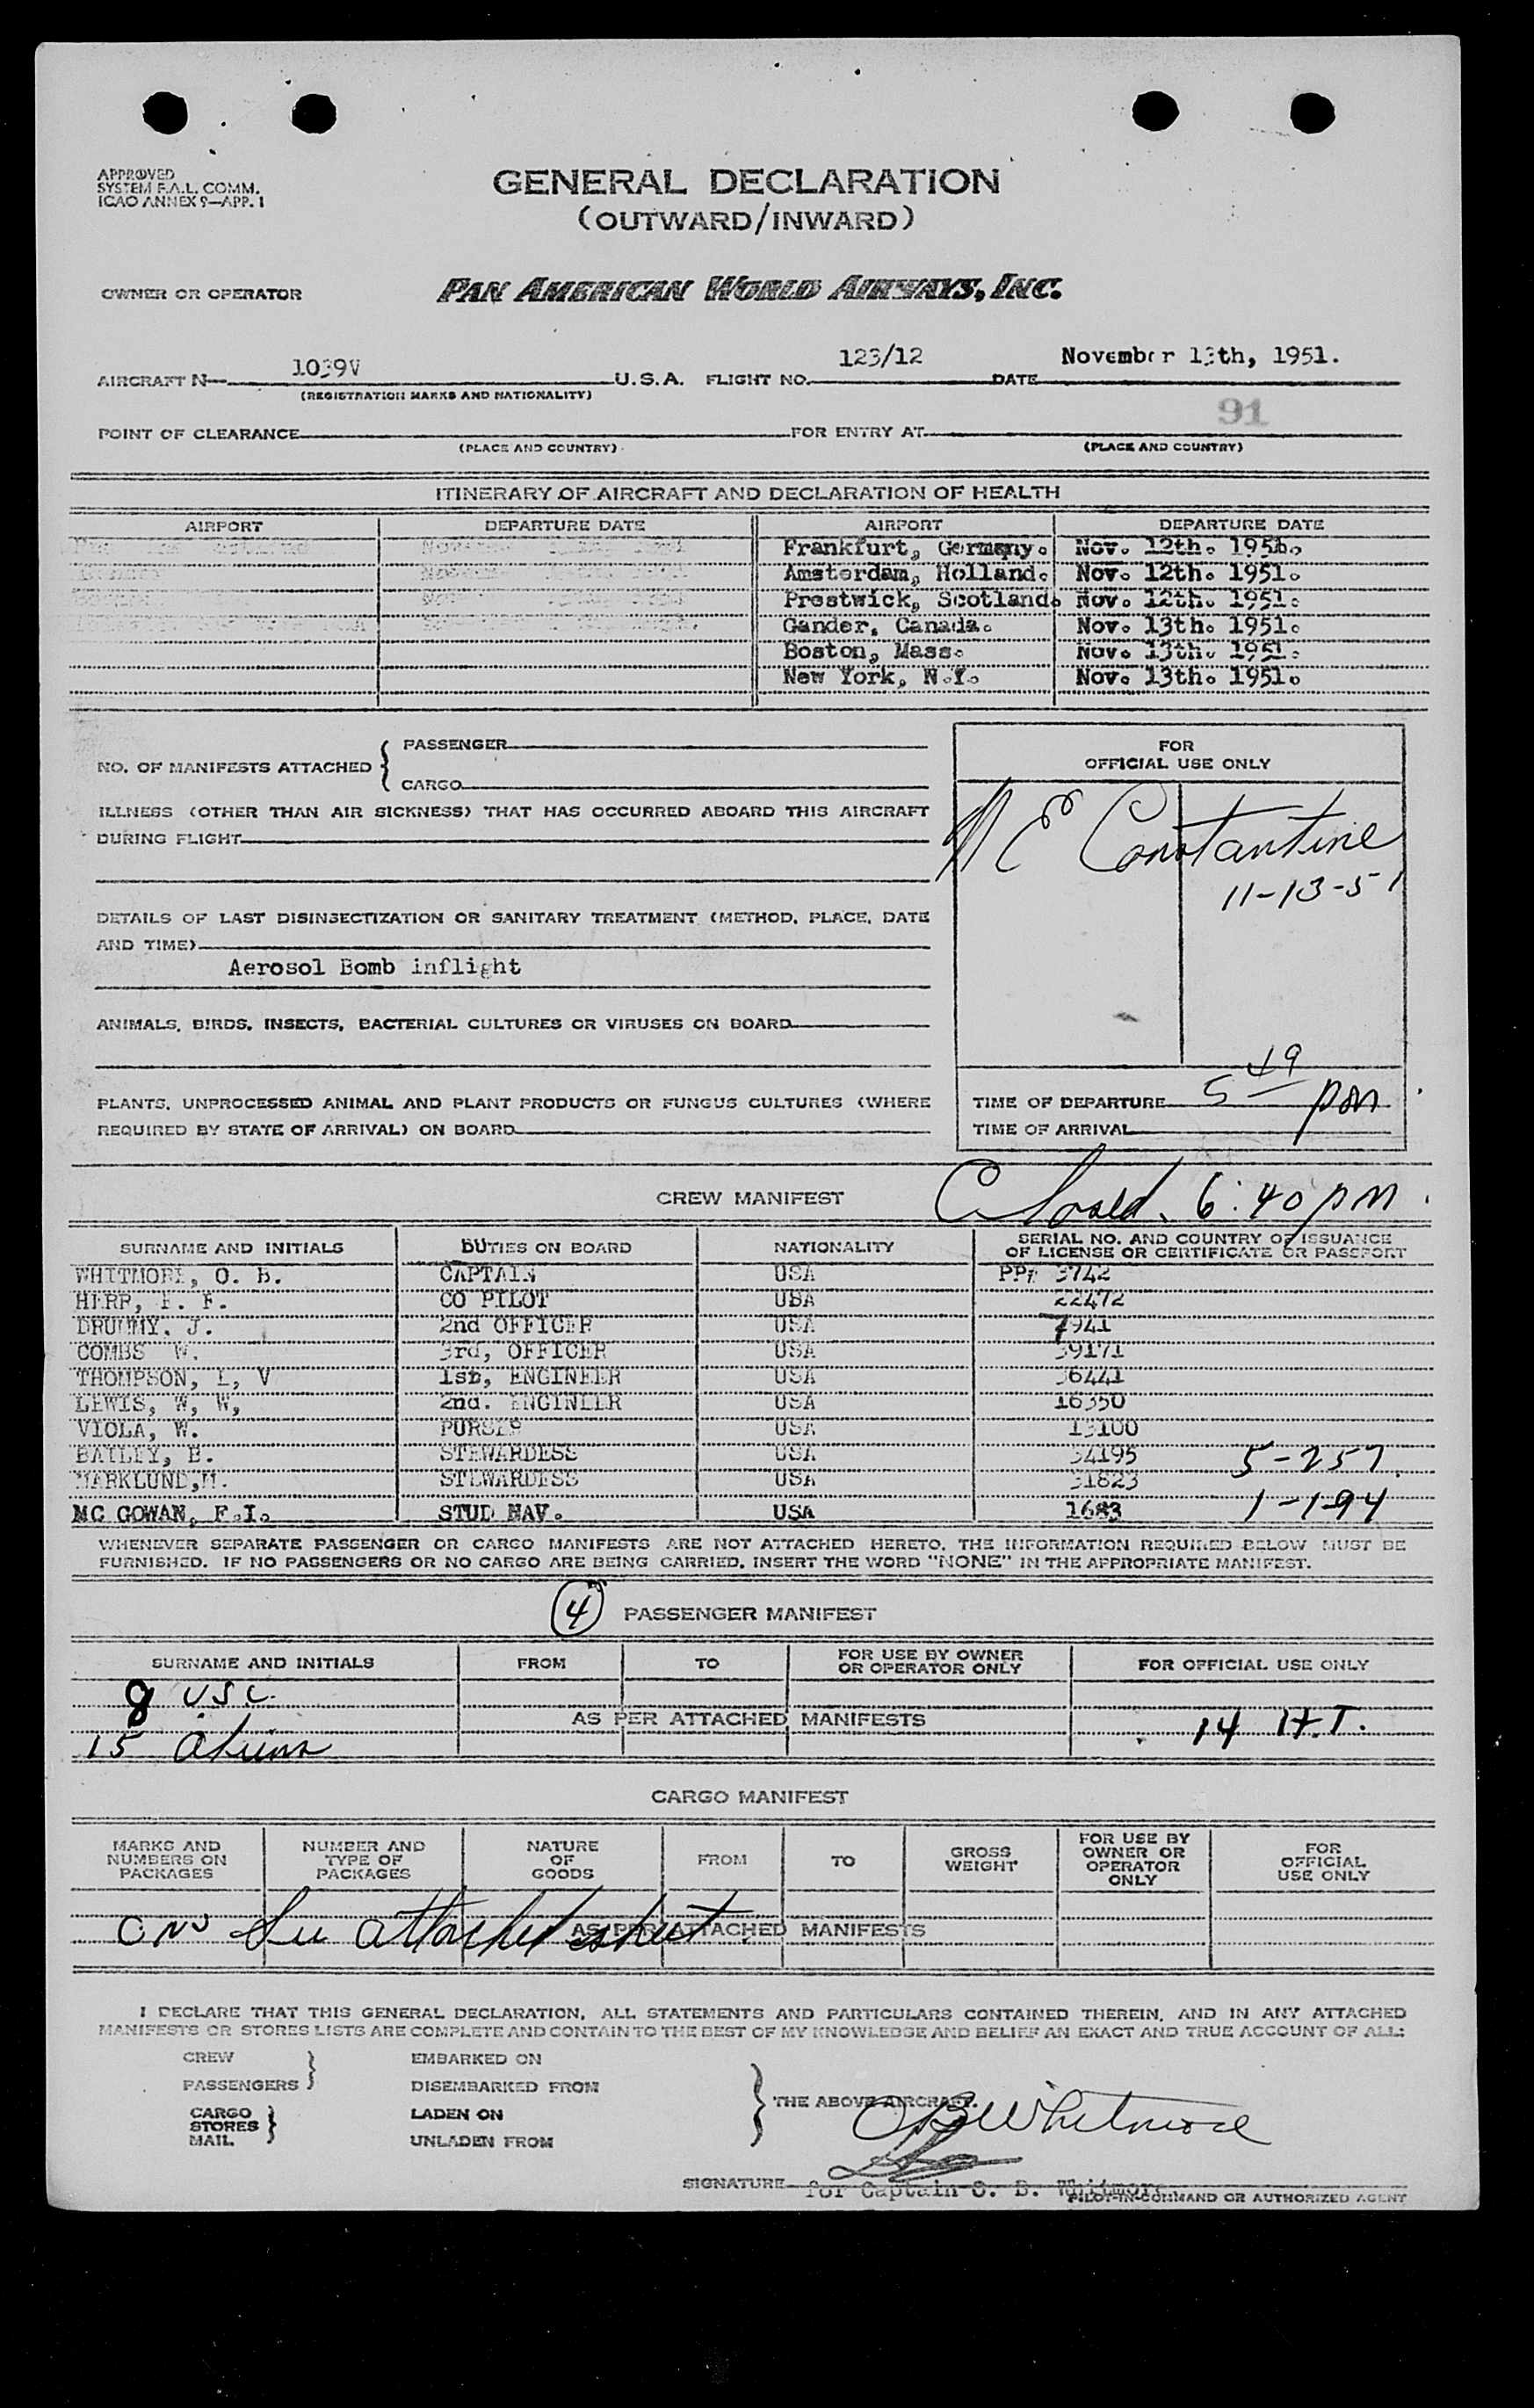 APPROVED
SYSTEM F.A.L. COMM.
ICAO ANNEX 9—APP. 1
GENERAL DECLARATION
(OUTWARD/INWARD)
OWNER OR OPERATOR PAN AMERICAN WORLD AIRWAYS, INC.
AIRCRAFT N— 1039V U.S.A. FLIGHT NO. 123/12 DATE November 13th, 1951.
(REGISTRATION MARKS AND NATIONALITY)
91
POINT OF CLEARANCE FOR ENTRY AT
(PLACE AND COUNTRY) (PLACE AND COUNTRY)
ITINERARY OF AIRCRAFT AND DECLARATION OF HEALTH
AIRPORT DEPARTURE DATE AIRPORT DEPARTURE DATE
Frankfurt, Germany. Nov. 12th. 1951.
Amsterdam, Holland. Nov. 12th. 1951.
Prestwick, Scotland. Nov. 12th. 1951.
Gander, Canada. Nov. 13th. 1951.
Boston, Mass. Nov. 13th. 1951.
New York, N.Y. Nov. 13th. 1951.
NO. OF MANIFESTS ATTACHED { PASSENGER
CARGO
FOR
OFFICIAL USE ONLY
ILLNESS (OTHER THAN AIR SICKNESS) THAT HAS OCCURRED ABOARD THIS AIRCRAFT
DURING FLIGHT
E Constantine
11-13-51
DETAILS OF LAST DISINSECTIZATION OR SANITARY TREATMENT (METHOD, PLACE, DATE
AND TIME)
Aerosol Bomb inflight
ANIMALS, BIRDS, INSECTS, BACTERIAL CULTURES OR VIRUSES ON BOARD
PLANTS, UNPROCESSED ANIMAL AND PLANT PRODUCTS OR FUNGUS CULTURES (WHERE
REQUIRED BY STATE OF ARRIVAL) ON BOARD
TIME OF DEPARTURE 5 49 pm
TIME OF ARRIVAL
CREW MANIFEST
6:40 pm.
SURNAME AND INITIALS DUTIES ON BOARD NATIONALITY SERIAL NO. AND COUNTRY OF ISSUANCE
OF LICENSE OR CERTIFICATE OR PASSPORT
WHITMORE, O. B. CAPTAIN USA PP# 3742
HERR, F. CO PILOT USA 22472
DRUMMY, J. 2nd OFFICER USA 7941
COMBS W. 3rd, OFFICER USA 39171
THOMPSON, L, V 1st, ENGINEER USA 36441
LEWIS, W, W, 2nd. ENGINEER USA 16350
VIOLA, W. PURSER USA 13100
BAILEY, B. STEWARDESS USA 34195 5-257
MARKLUND,M. STEWARDESS USA 31823
MC GOWAN, F.I. STUD NAV. USA 1683 1-194
WHENEVER SEPARATE PASSENGER OR CARGO MANIFESTS ARE NOT ATTACHED HERETO, THE INFORMATION REQUIRED BELOW MUST BE
FURNISHED. IF NO PASSENGERS OR NO CARGO ARE BEING CARRIED, INSERT THE WORD "NONE" IN THE APPROPRIATE MANIFEST.
4 PASSENGER MANIFEST
SURNAME AND INITIALS FROM TO FOR USE BY OWNER
OR OPERATOR ONLY FOR OFFICIAL USE ONLY
8 USC.
AS PER ATTACHED MANIFESTS 14 H.T.
15 aliens
CARGO MANIFEST
MARKS AND
NUMBERS ON
PACKAGES NUMBER AND
TYPE OF
PACKAGES NATURE
OF
GOODS FROM TO GROSS
WEIGHT FOR USE BY
OWNER OR
OPERATOR
ONLY FOR
OFFICIAL
USE ONLY
See attached sheet. AS PER ATTACHED MANIFESTS
I DECLARE THAT THIS GENERAL DECLARATION, ALL STATEMENTS AND PARTICULARS CONTAINED THEREIN, AND IN ANY ATTACHED
MANIFESTS OR STORES LISTS ARE COMPLETE AND CONTAIN TO THE BEST OF MY KNOWLEDGE AND BELIEF AN EXACT AND TRUE ACCOUNT OF ALL:
CREW EMBARKED ON
PASSENGERS } DISEMBARKED FROM
THE ABOVE AIRCRAFT.
CARGO LADEN ON
STORES }
MAIL UNLADEN FROM
OB Whitmore
SIGNATURE for Captain O. B. Whitmore
PILOT-IN-COMMAND OR AUTHORIZED AGENT